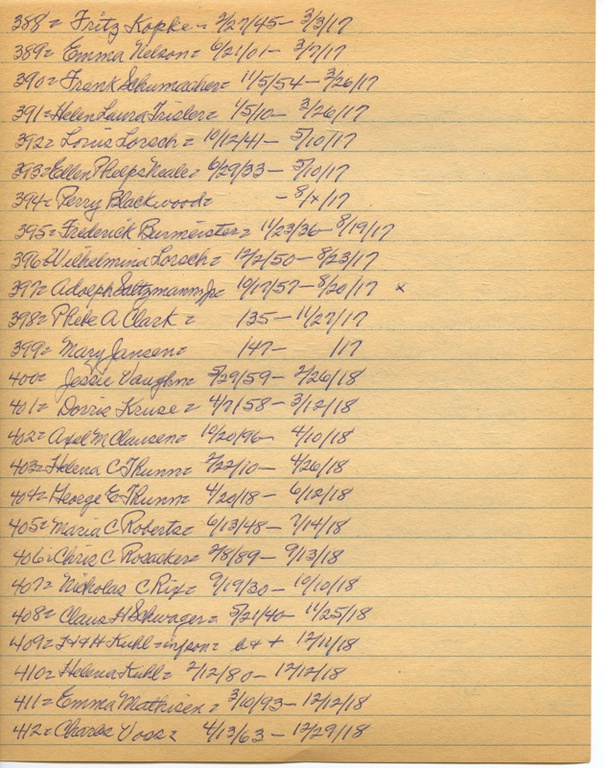 388= Fritz Kopke - 3/27/45 - 3/3/17
389= Emma Nelson= 6/21/01 - 3/7/17
390= Frank Schumacher= 11/5/54 - 3/26/17
391= Helen Laura Trisler= 1/5/10 - 3/26/17
392= Louis Lorsch= 10/12/41 - 5/10/17
393= Ellen Phelps Neale= 6/29/33 - 5/10/17
394= Perry Blackwood= - 8/x/17
395= Frederick Burmeister= 11/23/36 - 8/19/17
396= Wilhelmina Lorsch= 12/2/50 - 8/23/17
397= Adolph Saltzmann Jr= 10/17/57 - 8/20/17 x
398= Phebe A Clark = 135 - 11/27/17
399= Mary Jansen= 147- 117
400= Jessie Vaughn= 5/29/59 - 2/26/18
401= Dorris Kruse= 4/7/58 - 3/12/18
402= Axel M Clausen= 10/20/96 - 4/10/18
403= Helena C Thunn= 2/22/10 - 4/26/18
404= George E Thunn= 4/20/18 - 6/12/18
405= Maria C Roberts= 6/13/48 - 7/14/18
406= Chris C Rosacker= 2/8/89 - 9/13/18
407= Nicholas C Rix= 9/19/30 - 10/10/18
408= Claus H Schwager= 5/21/40 - 11/25/18
409= H+H Kuhl= infson= b + + 12/11/18
410= Helena Kuhl= 2/12/80 - 12/12/18
411= Emma Mathisen= 3/10/93 - 12/12/18
412= Charles Voss= 4/13/63 - 12/29/18